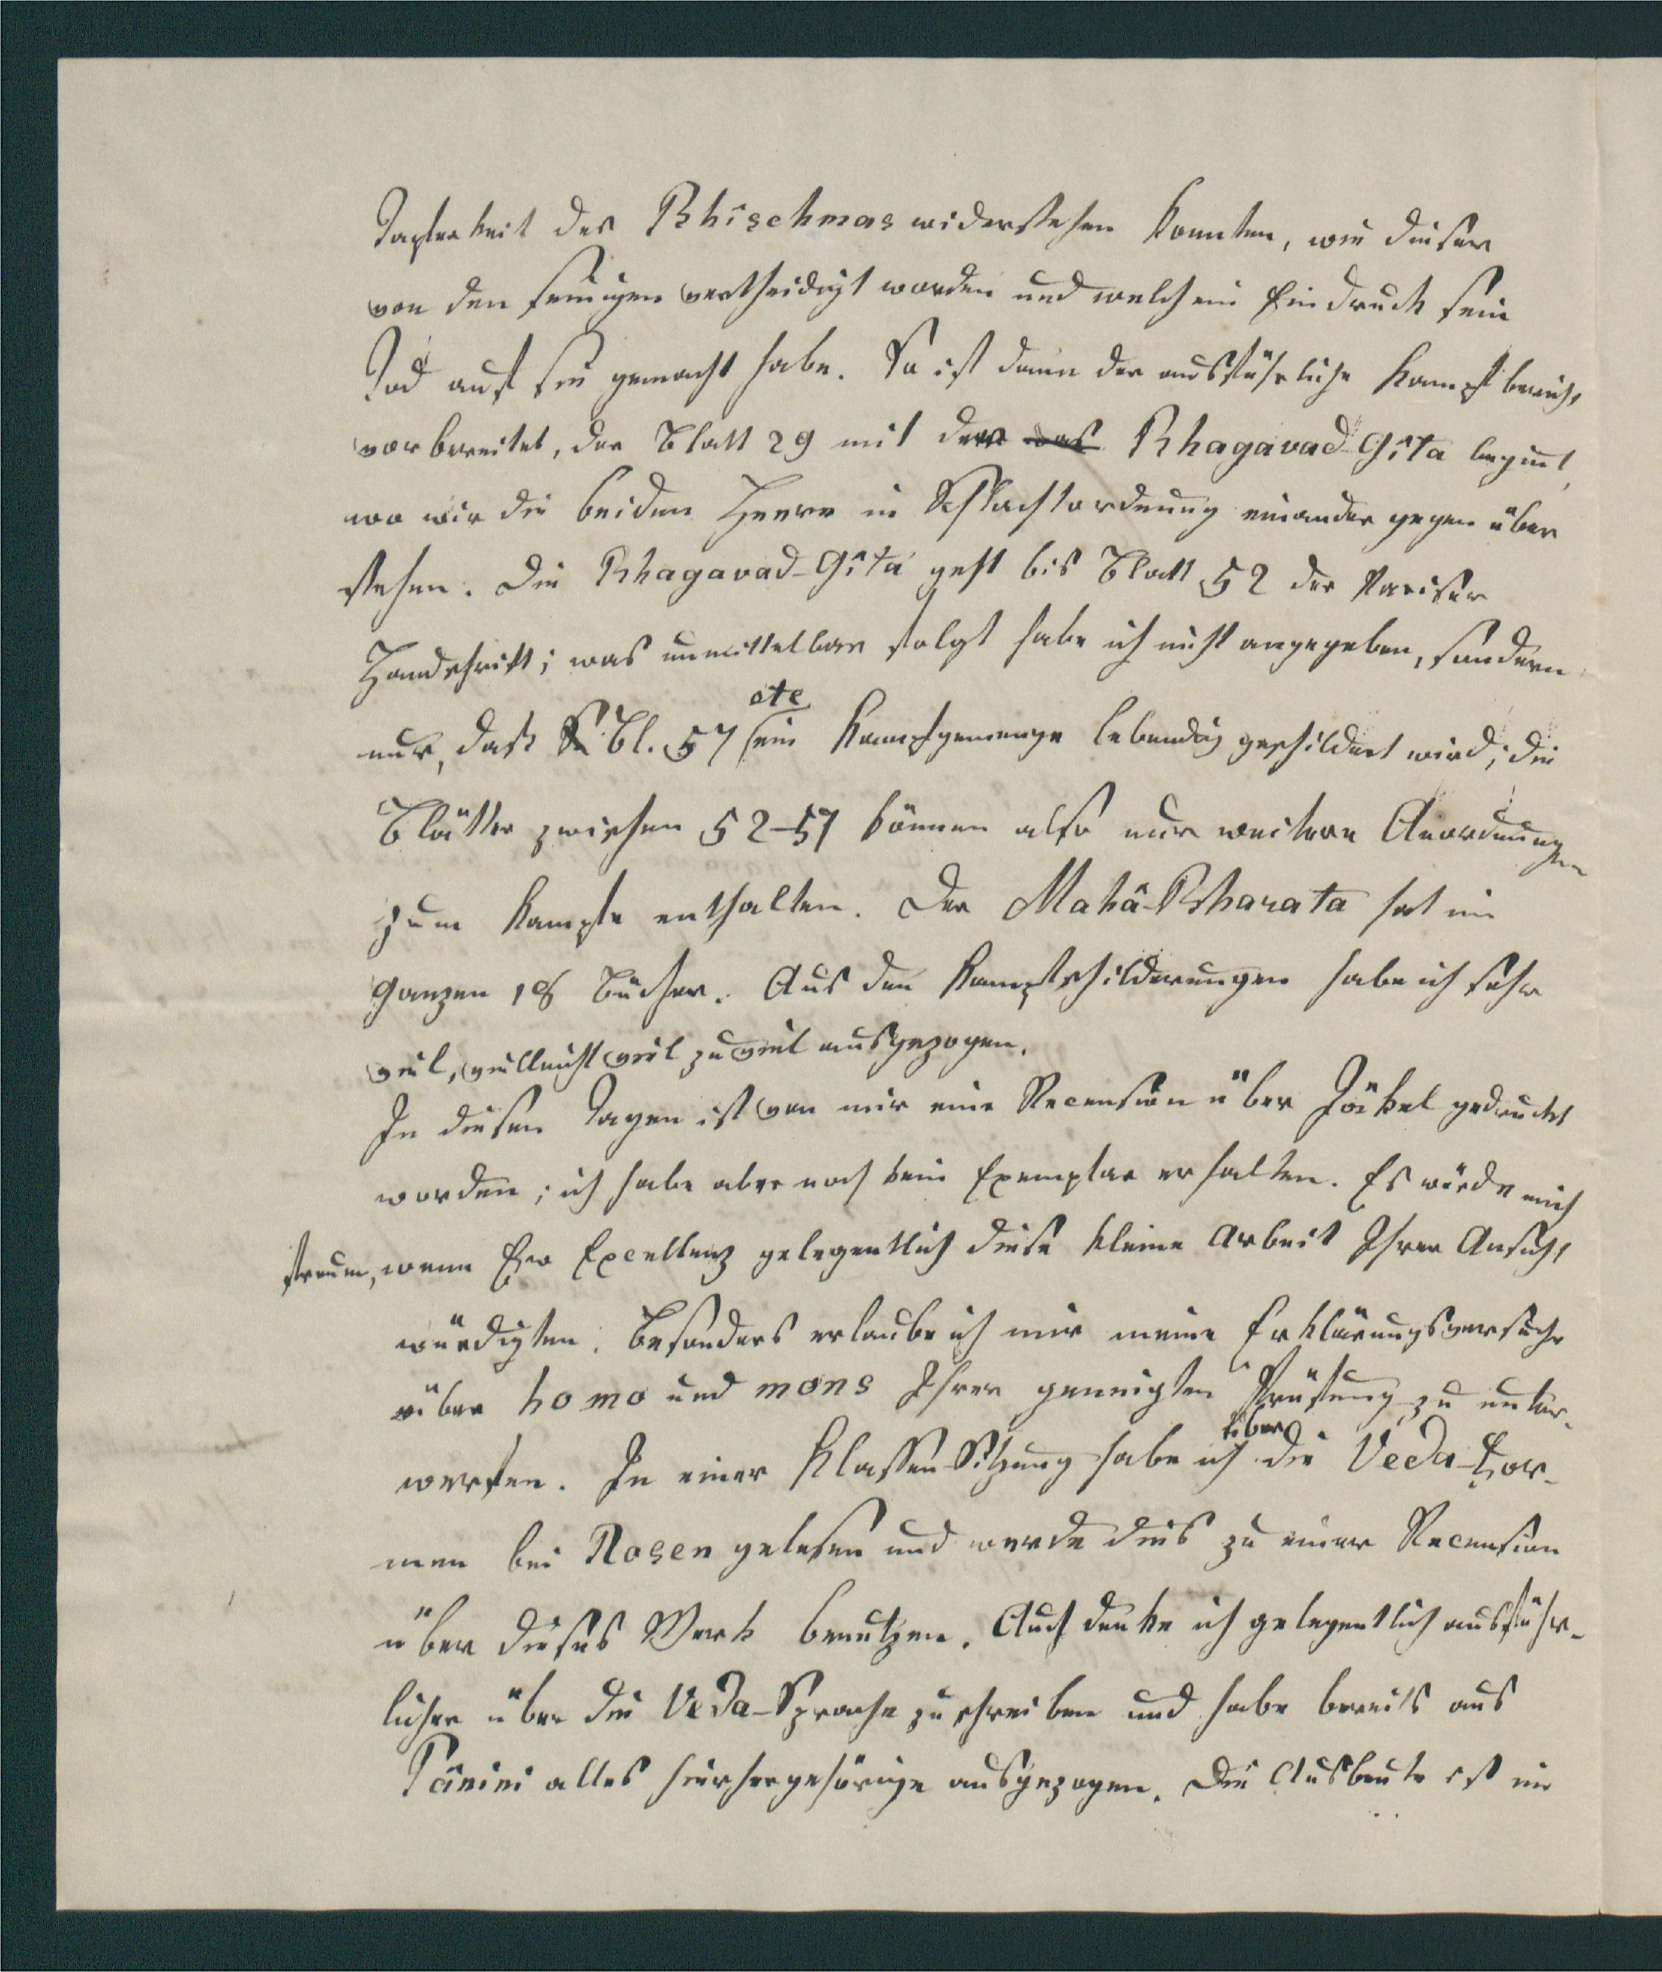 Tapferkeit des Bhîschmas widerstehen konnten, wie dieser
von den seinigen vertheidigt worden und welchen Eindruck sein
Tod auf sie gemacht habe. So ist dann der ausführliche Kampfbericht
vorbereitet, der Blatt 29 mit der was Bhagavad-Gîta beginnt,
wo wir die beiden Heere in Schlachtordnung einander gegen über
stehen. Die Bhagavad-Gîtá geht bis Blatt 52 der Pariser
Handschrift; was unmittelbar folgt habe ich nicht angegeben, sondern
nur, daß Bl. 57 etc ein Kampfgemenge lebendig geschildert wird; die
Blätter zwischen 52-57 können also nur weitere Anordnungen
zum Kampfe enthalten. Der Mahâ-Bharata hat im
Ganzen 18 Bücher. Aus den Kampfschilderungen habe ich sehr
viel, vielleicht viel zu viel ausgezogen.
In diesen Tagen ist von mir eine Recension über Jäkel gedruckt
worden; ich habe aber noch kein Exemplar erhalten. Es würde mich
freuen, wenn Ew Excellenz gelegentlich diese kleine Arbeit Ihrer Ansicht
würdigten. Besonders erlaube ich mir meine Erklärungsversuche
über homo und mons Ihrer geneigten Prüfung zu unter-
werfen. In einer Klassen-Sitzung habe ich über die Vèda-For-
men bei Rosen gelesen und werde dies zu einer Recension
über dieses Werk benutzen. Auch denke ich gelegentlich ausführ-
licher über die Veda-Sprache zu schreiben und habe bereits aus
Pânini alles hierhergehörige ausgezogen. Die Ausbeute ist im